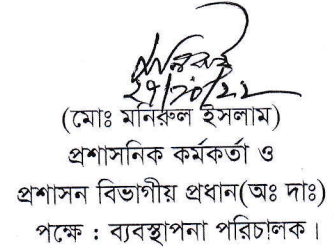 ২৭/১০/২২
(মোঃ মনিরুল ইসলাম)
প্রশাসনিক কর্মকর্তা ও
প্রশাসন বিভাগীয় প্রধান(অঃ দাঃ)
পক্ষে : ব্যবস্থাপনা পরিচালক।